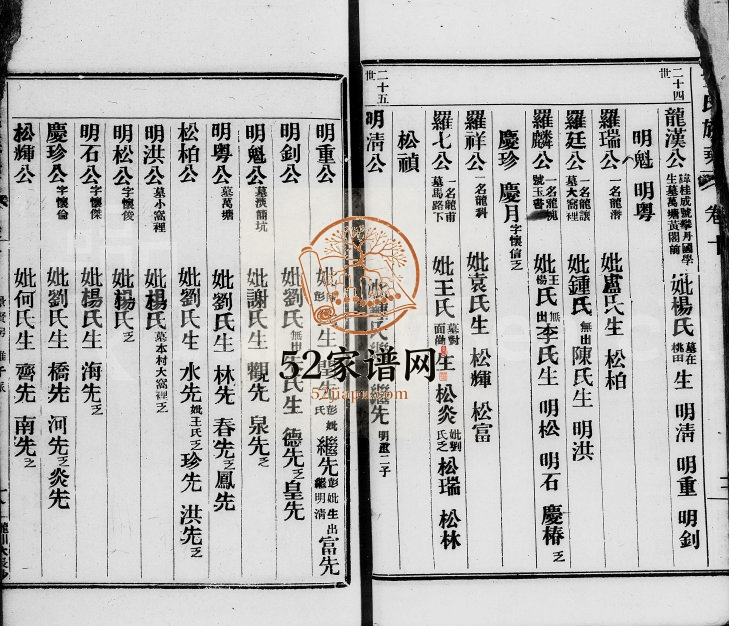 二十四世
龍漢公 諱桂成號攀丹國學生墓萬塘黃閣前 妣楊氏 墓在桃田 生 明清 明重 明釗
明魁 明粵
羅瑞公 一名龍潛 妣盧氏生 松柏
羅廷公 一名龍讓墓大窩裡 妣鍾氏 無出 陳氏生 明洪
羅麟公 號玉書 妣 王楊 氏 無出 李氏生 明松 明石 慶椿 乏
慶珍 慶月 字懷信乏
羅祥公 一名龍科 妣袁氏生 松輝 松富
羅七公 一名龍甫墓馬路下 妣王氏 墓對面 生 松炎 妣劉氏乏 松瑞 松林
松禎
二十五世
明清公 繼先 明重二子
明重公 妣 生 繼先 富先
明釗公 妣劉氏 無出 氏生 德先 乏 皇先
明魁公 妣謝氏生 觀先 泉先 乏
明粵公 墓萬塘 妣劉氏生 林先 春先 乏 鳳先
松柏公 妣劉氏生 水先 妣王氏乏 珍先 洪先 乏
明洪公 墓小窩裡 妣楊氏 墓本村大窩裡乏
明松公 字懷俊 妣楊氏 乏
明石公 字懷傑 妣楊氏生 海先 乏
慶珍公 字懷倫 妣劉氏生 橋先 河先 乏 炎先
松輝公 妣何氏生 齊先 南先 乏
52家谱网
52jiapu.com